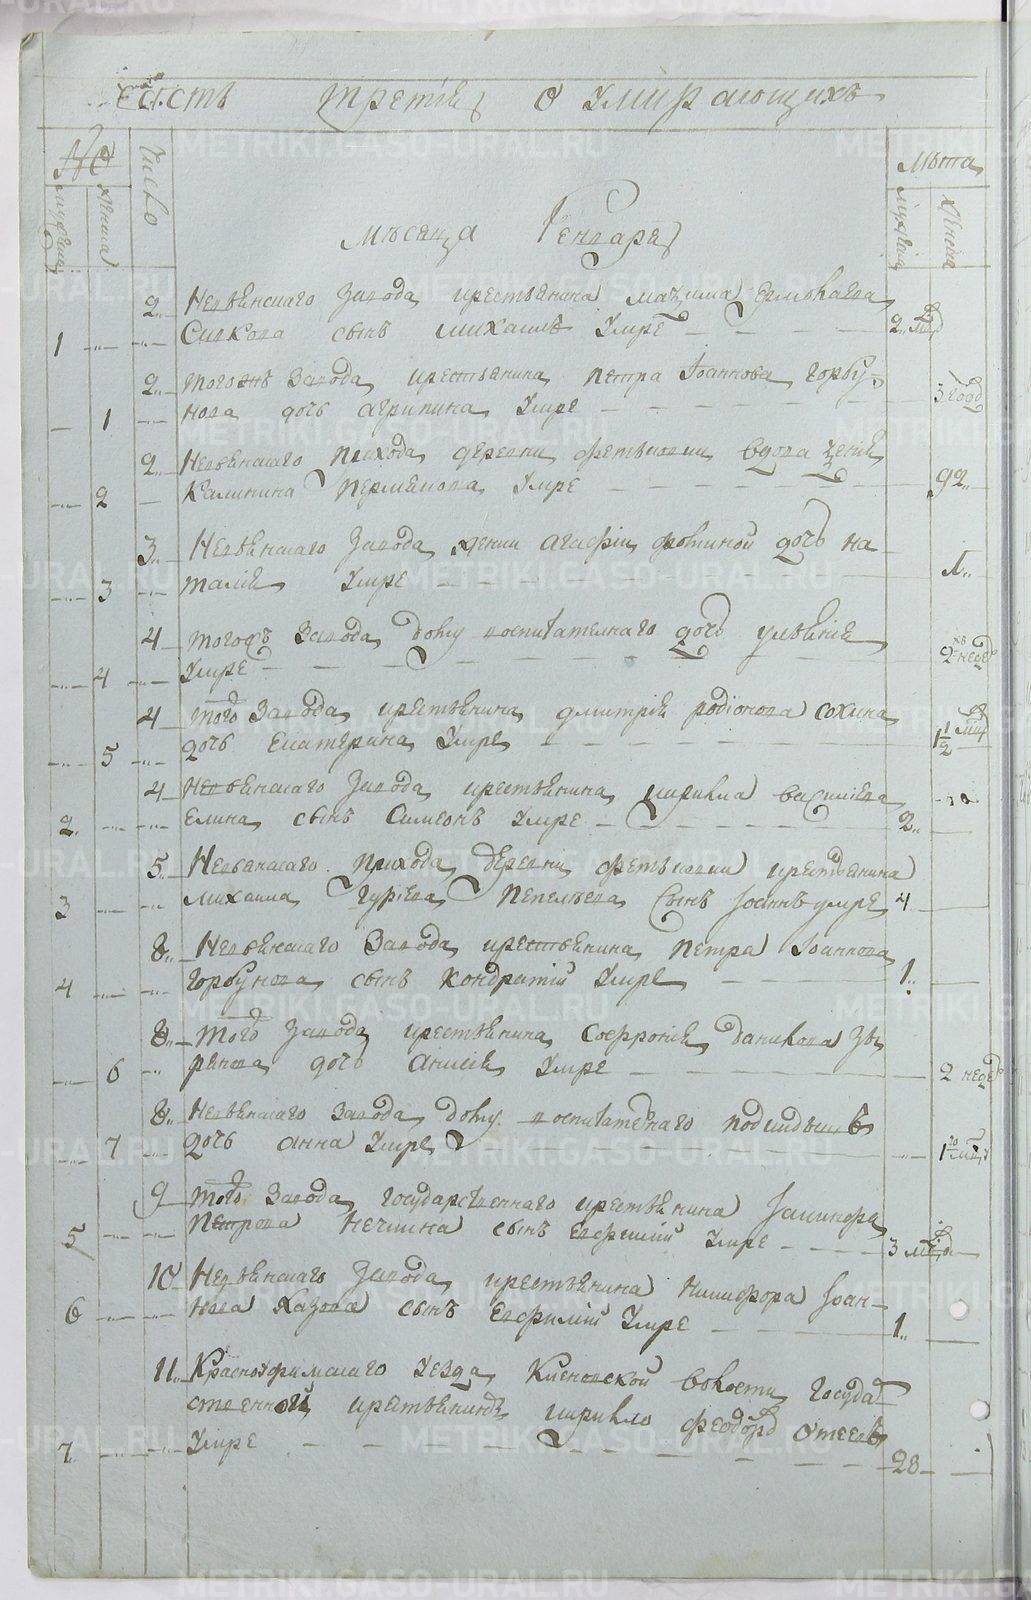 Часть третія о Умирающихъ
№ Число Лѣта
мужеска женска мужеска женска
мѣсяца Генваря
2 Невьянскаго Завода крестьянина Маѯима Ермолаева 2 мѣс
1 Силкова сынъ Михаилъ Умре
2 тогожъ Завода крестьянина Петра Іоаннова Горбу- 3 года
1 нова дочь Агрипина Умре
2 Невьянскаго Прихода деревни Фетьковки вдова
2 Калинина Умре 92
3 Невьянскаго Завода Агафіи Фотиной дочь На
3 талія Умре
4 тогожъ Завода дому воспитателнаго дочь
4 Умре 2 недѣ
4 того Завода крестьянина Дмитрія Родіонова Сохина 1 1/2 мѣц
5 дочь Екатерина Умре
4 Невьянскаго Завода крестьянина Кирилла Василіева
2 Елина сынъ Симеонъ Умре 2
5 Невьянскаго Прихода деревни Фетьковки крестьянина
3 Михаила Гуріева Пепелѣева Сынъ Іоаннъ умре 4
8 Невьянскаго Завода крестьянина Петра Іоаннова
4 Горбунова сынъ Кондратій Умре 1
8 того Завода крестьянина Софронія Данилова Зы
6 рянова дочь Анисія Умре 2 недѣ
8 Невьянскаго Завода дому воспитателнаго подкидышъ
7 дочь Анна Умре 1 мѣц
9 того Завода государственнаго крестьянина
5 Петрова Нечкина сынъ Евфимій Умре 3 мѣс
10 Невьянскаго Завода крестьянина Никифора Іоан-
6 нова Казова сынъ Евфимій Умре 1
11 Красноуфимскаго Уезда Кленовской волости Государ
ственной крестьянинъ Кирилло Феодоровъ
7 Умре 28
METRIKI.GASO-URAL.RU